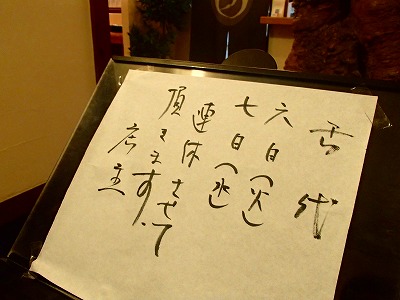 舌代
六日(火)
七日(水)
連休させて
頂きます。
店主